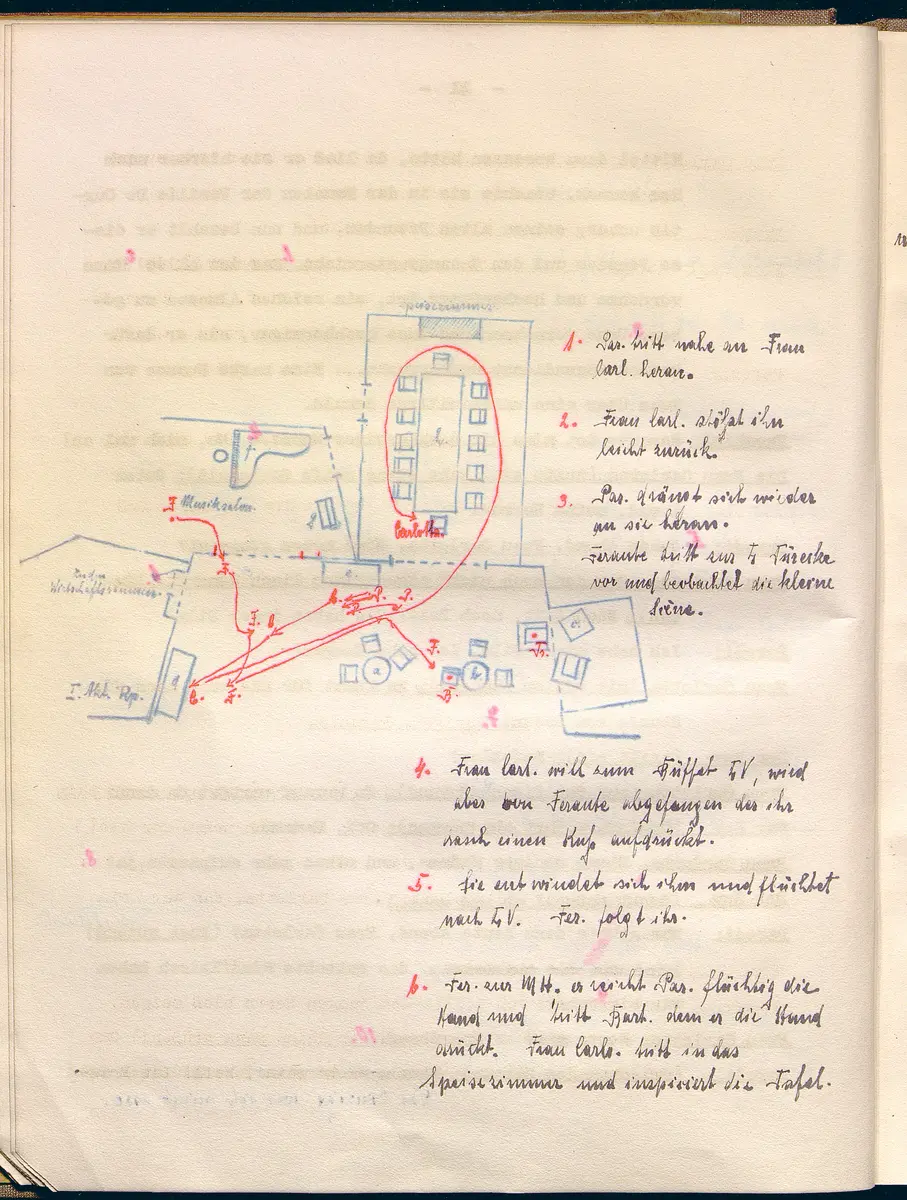 Speisezimmer
1. Par. tritt nahe an Frau
Carl. heran.
2. Frau Carl. stößt ihn
leicht zurück.
3. Par. drängt sich wieder
an sie heran.
Feraute tritt zur L Türecke
vor und beobachtet die kleine
Scene.
f
F
Musiksalon.
Carlotta.
Zu den
Wirtschaftsräumen
I. Akt. Rp.
F.
C.
P.
F.
C.
F.
a
b
B.
Fr.
d
e
g
4. Frau Carl. will zum Büffet LV, wird
aber von Feraute abgefangen der ihr
rasch einen Kuß aufdrückt.
5. Sie entwindet sich ihm und flüchtet
nach LV. Fer. folgt ihr.
6. Fer. zur Mtt. er reicht Par. flüchtig die
Hand und tritt Bart. dem er die Hand
drückt. Frau Carlo. tritt in das
Speisezimmer und inspiciert die Tafel.